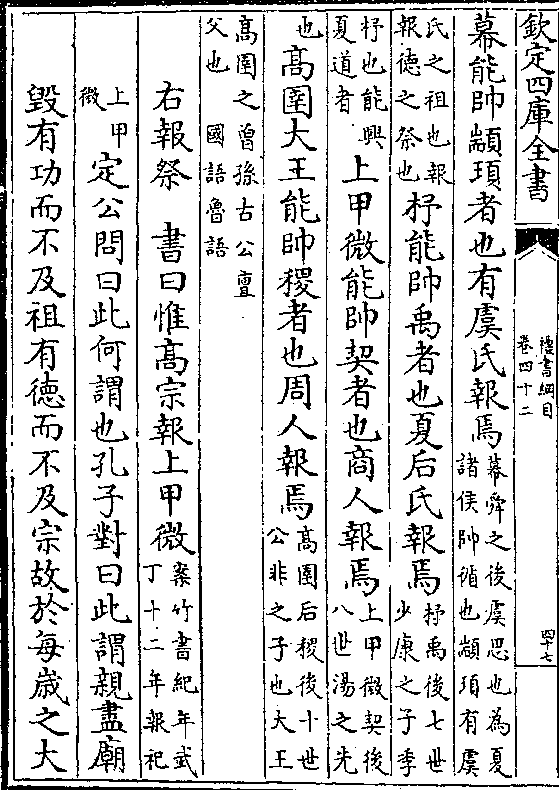 欽定四庫全書
禮書綱目
卷四十二
四十七
幕能帥顓頊者也有虞氏報焉幕舜之後虞思也為夏諸侯帥循也顓頊有虞
氏之祖也報報德之祭也杼能帥禹者也夏后氏報焉杼禹後七世少康之子季
杼也能興夏道者上甲微能帥契者也商人報焉上甲微契後八世湯之先
也高圉大王能帥稷者也周人報焉高圉后稷後十世公非之子也大王
高圉之曾孫古公亶父也 國語魯語
右報祭 書曰惟高宗報上甲微案竹書紀年武丁十二年報祀
上甲微定公問曰此何謂也孔子對曰此謂親盡廟
毀有功而不及祖有德而不及宗故於每歲之大